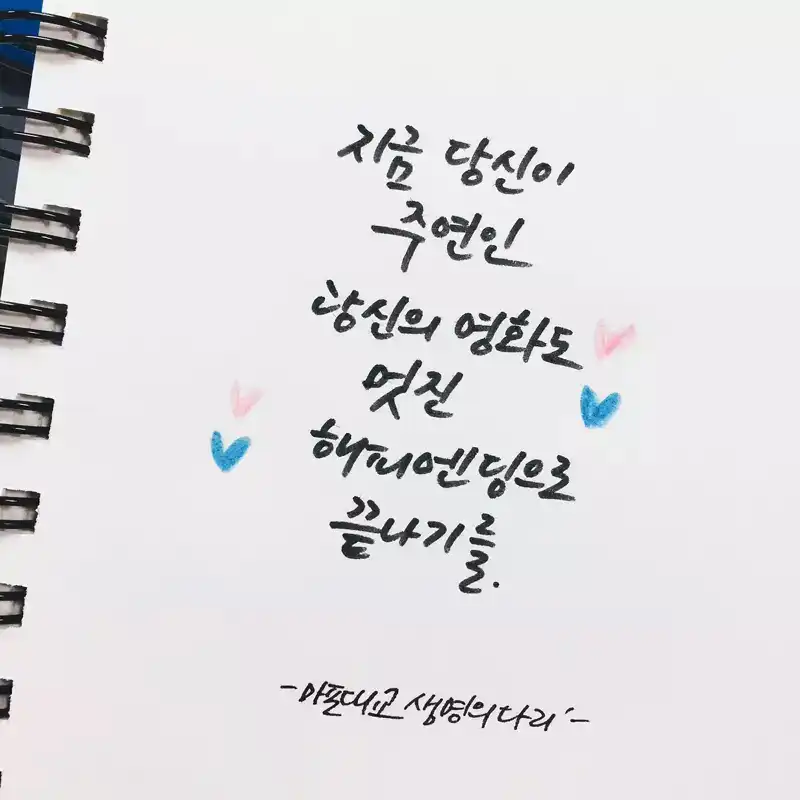 지금 당신이
주연인
당신의 영화도
멋진
해피엔딩으로
끝나기를.
-마포대교 생명의다리'-